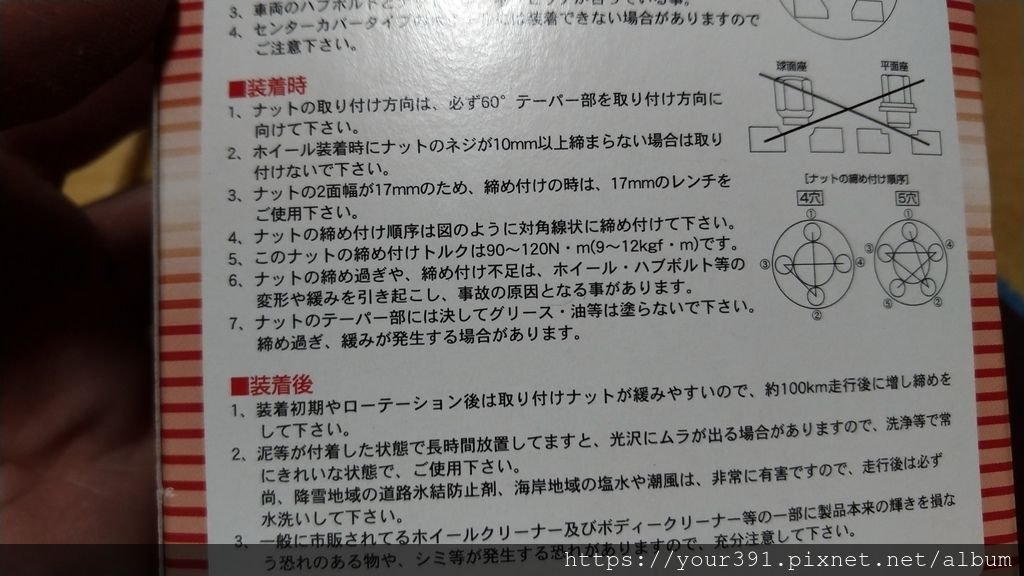 3、車両のハブボルトと
4、センターカバータイプの は装着できない場合がありますので
ご注意下さい。
■装着時
1、ナットの取り付け方向は、必ず60°テーパー部を取り付け方向に
向けて下さい。
2、ホイール装着時にナットのネジが10mm以上締まらない場合は取り
付けないで下さい。
3、ナットの2面幅が17mmのため、締め付けの時は、17mmのレンチを
ご使用下さい。
4、ナットの締め付け順序は図のように対角線状に締め付けて下さい。
5、このナットの締め付けトルクは90～120N・m(9～12kgf・m)です。
6、ナットの締め過ぎや、締め付け不足は、ホイール・ハブボルト等の
変形や緩みを引き起こし、事故の原因となる事があります。
7、ナットのテーパー部には決してグリース・油等は塗らないで下さい。
締め過ぎ、緩みが発生する場合があります。
球面座 平面座
[ナットの締め付け順序]
4穴 5穴
① ①
③ ④ ③ ④
② ⑤ ②
■装着後
1、装着初期やローテーション後は取り付けナットが緩みやすいので、約100km走行後に増し締めを
して下さい。
2、泥等が付着した状態で長時間放置してますと、光沢にムラが出る場合がありますので、洗浄等で常
にきれいな状態で、ご使用下さい。
尚、降雪地域の道路氷結防止剤、海岸地域の塩水や潮風は、非常に有害ですので、走行後は必ず
水洗いして下さい。
3、一般に市販されてるホイールクリーナー及びボディークリーナー等の一部に製品本来の輝きを損な
う恐れのある物や、シミ等が発生する恐れがありますので、充分注意して下さい。
https://your391.pixnet.net/album